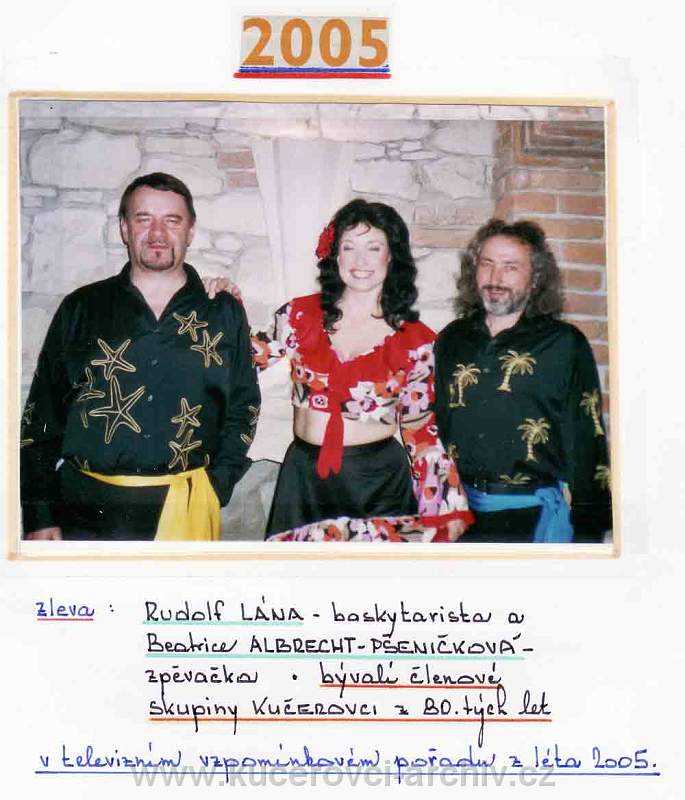 2005
zleva : Rudolf LÁNA - baskytarista a
Beatrice ALBRECHT-PŠENIČKOVÁ -
zpěvačka . bývalí členové
skupiny KUČEROVCI z 80.tých let
v televizním vzpomínkovém pořadu z léta 2005.
www.kucerovci-archiv.cz